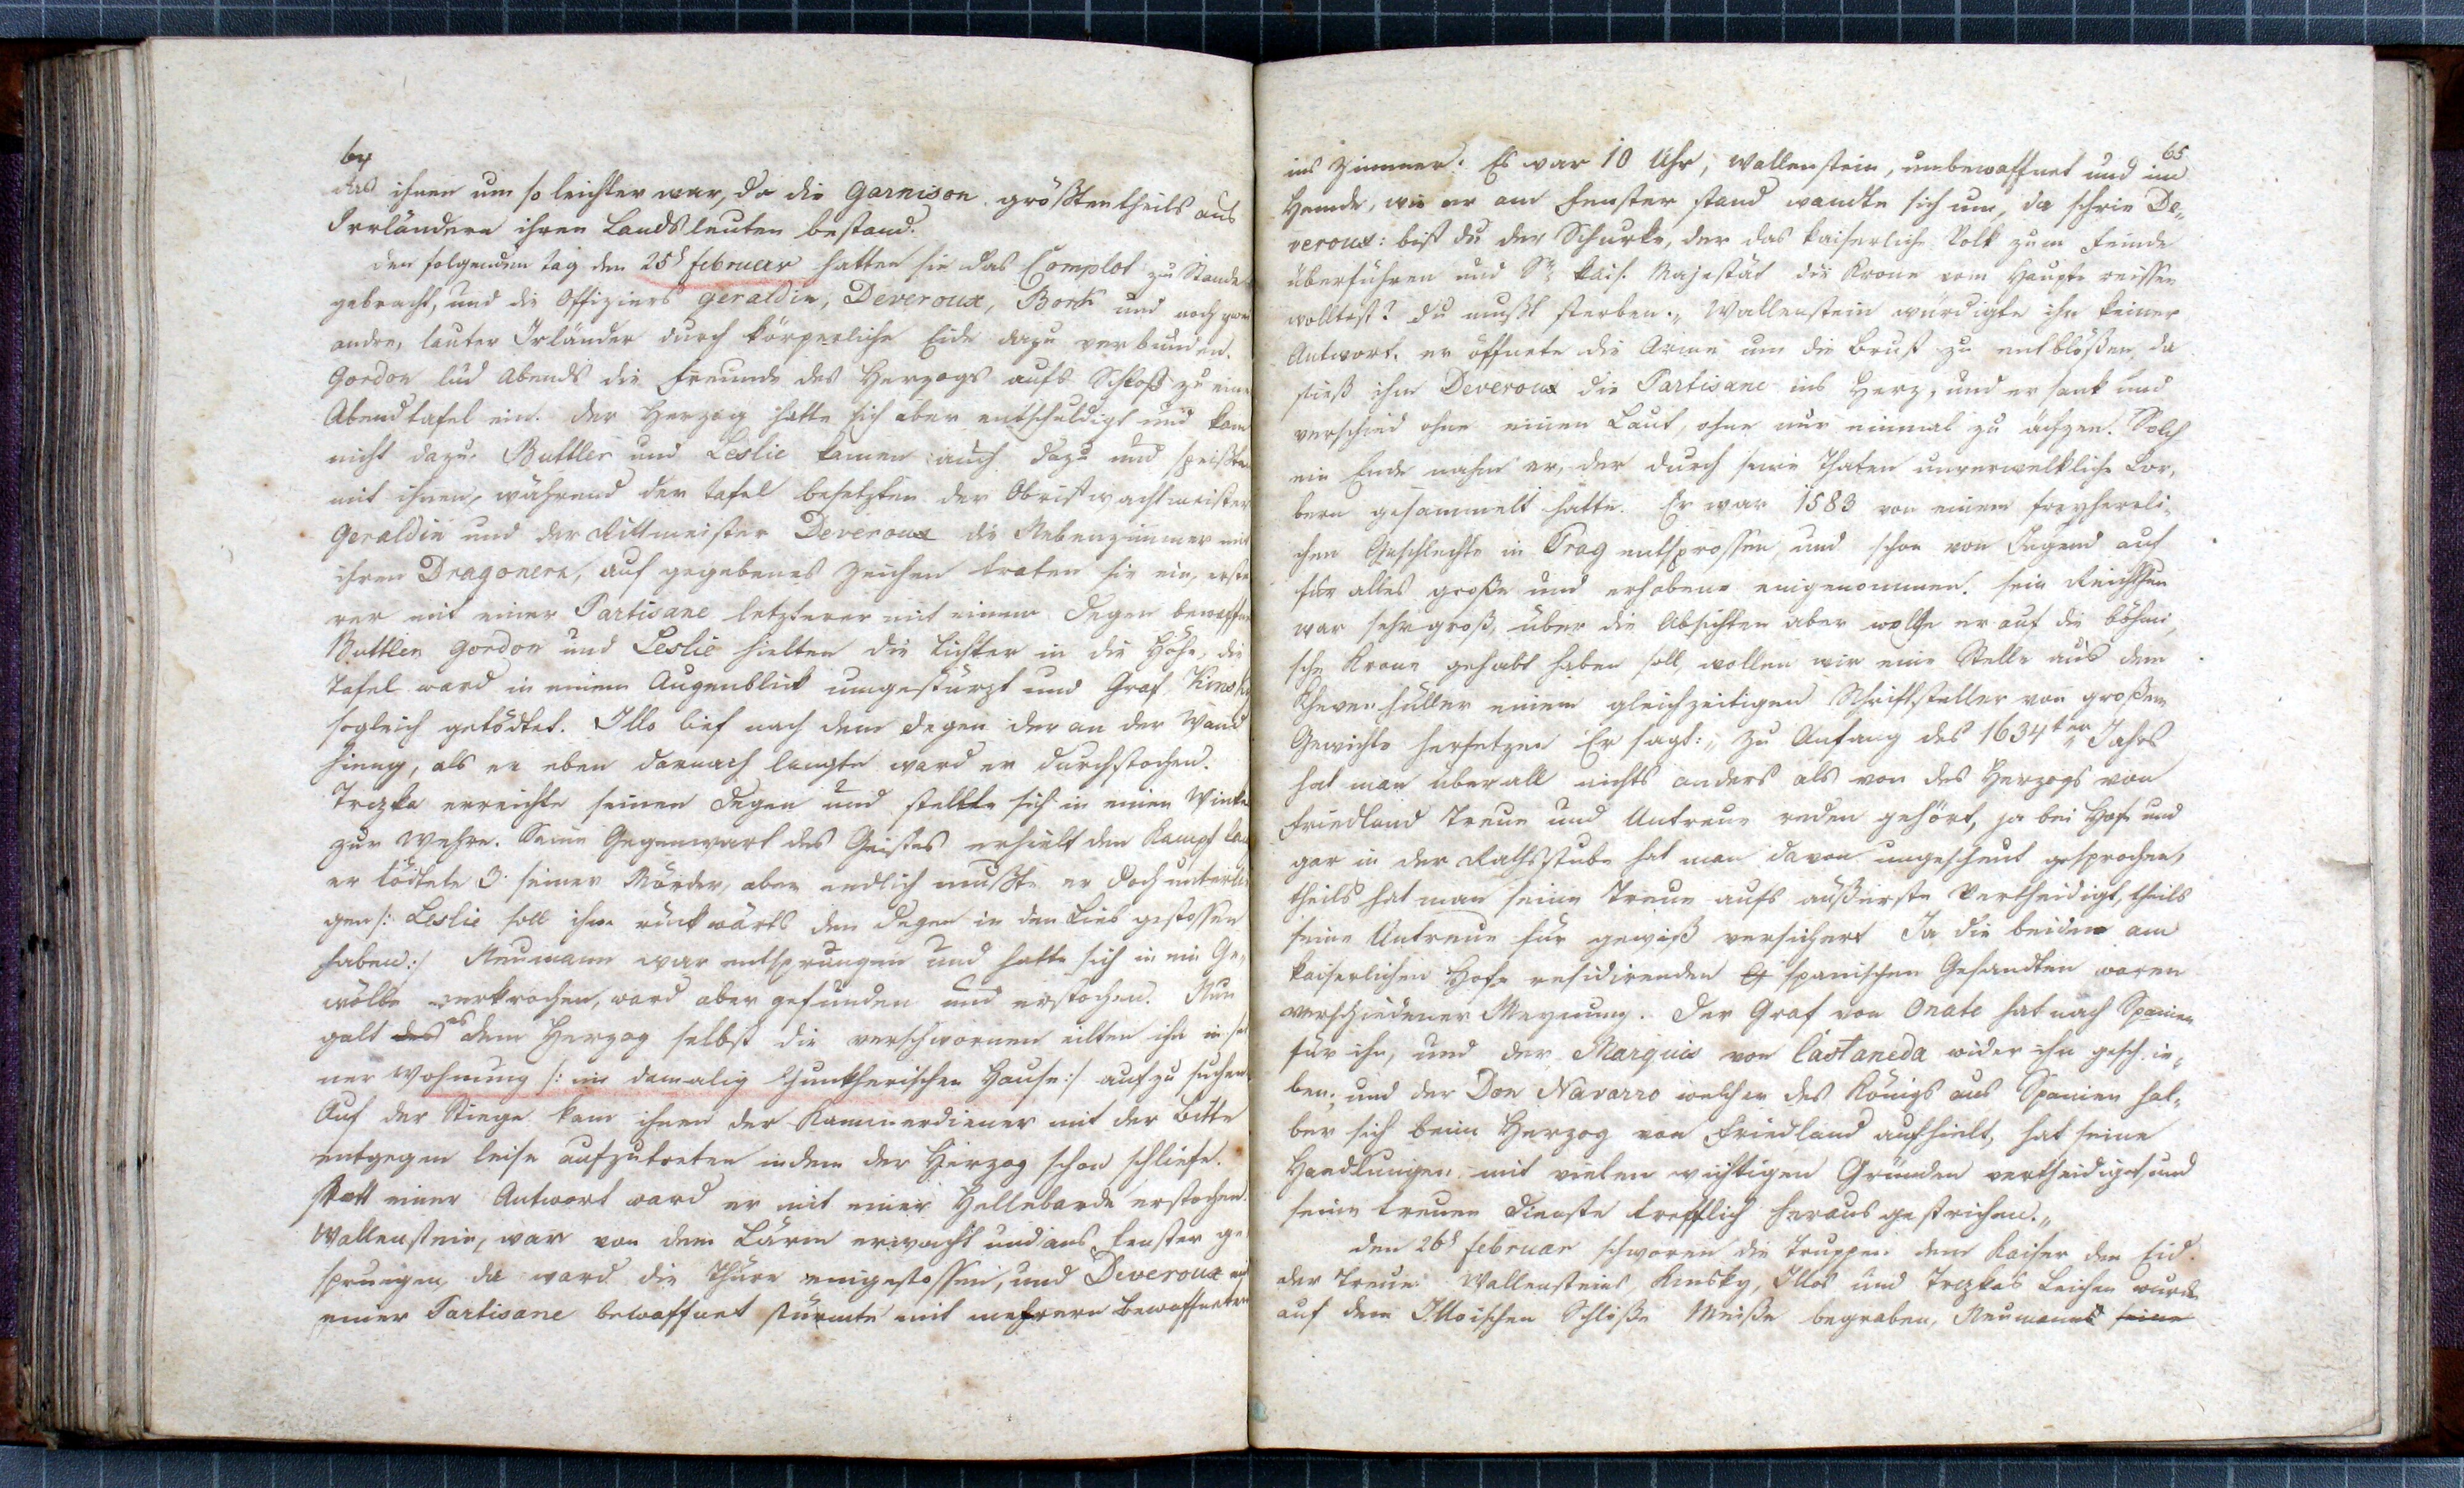 64
das ihnen um so leichter war, da die Garnison größtentheils aus
Irrländern ihren Landsleuten bestand.
den folgenden Tag den 25t februar hatten sie das Complot zu Stande
gebracht, und die Offiziers Geraldin, Deveroux, Bork und noch zwei
andre, lauter Irländer durch körperliche Eide dazu verbunden.
Gordon lud Abends die Freunde des Herzogs aufs Schloß zu einer
Abendtafel ein. der Herzog hatte sich aber entschuldigt und kam
nicht dazu. Buttler und Leslie kamen auch dazu und speißten
mit ihnen, während der Tafel besetzten der Obristwachtmeister
Geraldin und der Rittmeister Deveroux die Nebenzimmer mit
ihren Dragonern, auf gegebenes Zeichen traten sie ein, erste
rer mit einer Partisane letzterer mit einem Degen bewaffne
Buttler Gordon und Leslie hielten die Lichter in die Höhe, die
Tafel ward in einem Augenblick umgestürzt und Graf Kinsky
sogleich getödtet. Illo lief nach dem Degen der an der Wand
hieng, als er eben darnach langte ward er durchstochen.
Trzka erreichte seinen Degen und stellte sich in einen Winkel
zur Wehre. Seine Gegenwart des Geistes erhielt den Kampf lang
er tödtete 3 seiner Mörder, aber endlich mußte er doch unterlie
gen /: Leslie soll ihm rückwärts den Degen in den Leib gestossen
haben :/ Neumann war entsprungen und hatte sich in ein Ge„
wölbe verkrochen, ward aber gefunden und erstochen. Nun
galt des es dem Herzog selbst die verschwornen eilten ihn in sei
ner Wohnung /: im damalig Junkherischen Hause :/ aufzusuchen.
Auf der Stiege kam ihnen der Kammerdiener mit der Bitte
entgegen leise aufzutreten indem der Herzog schon schliefe.
Statt einer Antwort ward er mit einer Hellebarde erstochen.
Wallenstein, war von dem Lärm erwacht und ans Fenster ge„
sprungen, da ward die Thüre eingestossen, und Deveroux mit
einer Partisane bewaffnet stürmte mit mehrern Bewaffneten
65
ins Zimmer. Es war 10 Uhr, Wallenstein, unbewaffnet und im
Hemde, wie er am Fenster stand wandte sich um, da schrie De„
veroux: bist du der Schurke, der das kaiserliche Volk zum Feinde
überführen und Sr kais. Majestät die Krone vom Haupte reissen
wolltest? du mußt sterben.„ Wallenstein würdigte ihn keiner
Antwort. er öffnete die Arme um die Brust zu entblößen, da
stieß ihm Deveroux die Partisane ins Herz, und er sank und
verschied ohne einen Laut, ohne nur einmal zu ächzen. Solch
ein Ende nahm er, der durch seine Thaten unverwelkliche Lor„
bern gesammelt hatte. Er war 1583 von einem freyherrli„
chen Geschlechte in Prag entsprossen, und schon von Jugend auf
für alles große und erhabene eingenommen. sein Reichthum
war sehr groß, über die Absichten aber welche er auf die böhmi„
sche Krone gehabt haben soll, wollen wir eine Stelle aus dem
Khevenhüller einem gleichzeitigen Schriftsteller von großem
Gewichte hersetzen Er sagt: „ zu Anfang des 1634ten Jahrs
hat man überall nichts anders als von des Herzogs von
Friedland Treue und Untreue reden gehört, ja bei Hof und
gar in der Rathsstube hat man davon ungescheut gesprochen,
theils hat man seine Treue aufs äußerste vertheidigt, theils
seine Untreue für gewiß versichert Ja die beiden am
kaiserlichen Hofe residirenden spanischen Gesandten waren
verschiedener Meynung. Der Graf von Onate hat nach Spanien
für ihn, und der Marquis von Castaneda wider ihn geschrie„
ben; und der Don Navarro welcher des Königs aus Spanien hal„
ber sich beim Herzog von Friedland aufhielt, hat seine
Handlungen mit vielen wichtigen Gründen vertheidiget und
seine treuen Dienste trefflich herausgestrichen.„
den 26t februar schworen die Truppen dem Kaiser den Eid
der Treue. Wallensteins, Kinsky, Illos und Trzkas Leichen wurden
auf dem Illoischen Schloße Meiße begraben, Neumanns seine